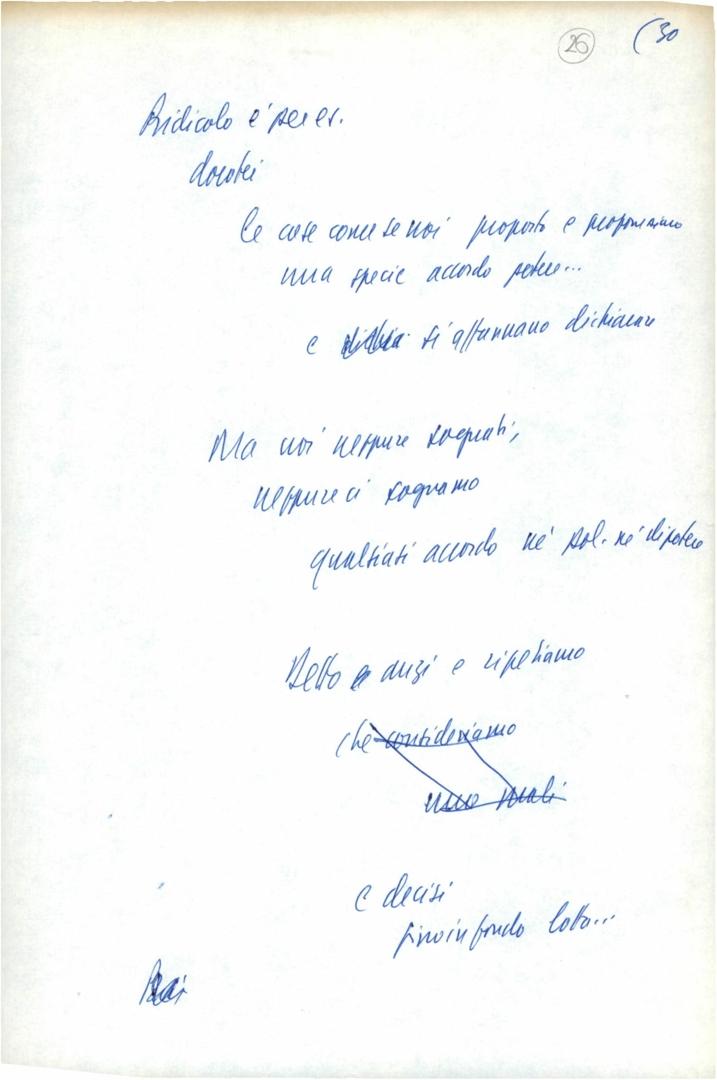 26
(30
Ridicolo è per es.
dorotei
le cose come se noi proposto e proponessimo
una specie accordo potere...
e si affannano dichiarare
Ma noi neppure sognati,
neppure ci sogniamo
qualsiasi accordo né sol. né di potere
Detto anzi e ripetiamo
che consideriamo
uno
e decisi
fino in fondo lotta...